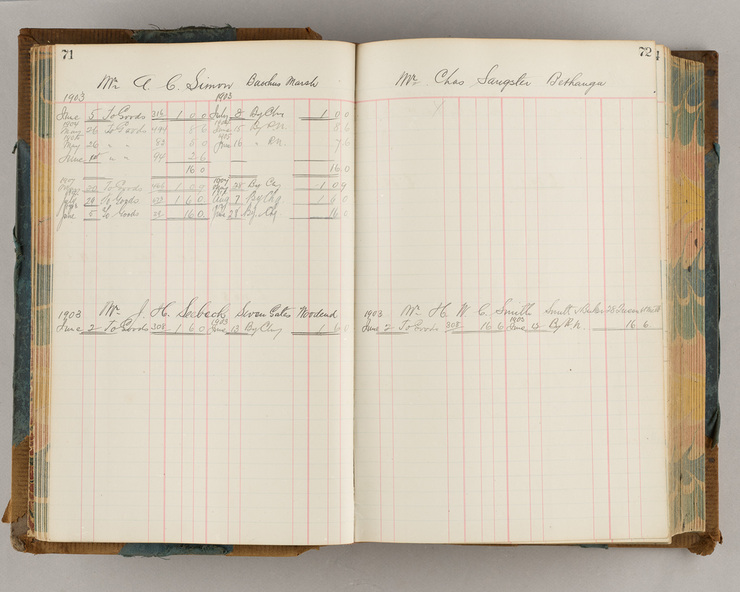 71
Mr A. C. Simon Bacchus Marsh
1903 1903
June 5 To Goods 316 1 0 0 July 2 By Chq 1 0 0
1904
May 26 To Goods 8 6 June 15 By 8 6
1905
May 26 " " 6 0 June 16 " 7 6
June 1st " " 90 2 6
16 0 16 0
1907 1907
20 To Goods 1 0 9 28 By Cq 1 0 9
29 To Goods 1 6 0 Aug 7 By Chq 1 6 0
June 5 To Goods 16 0 June 28 By Cq 16 0
Mr J. H. Seebeck Seven Gates Woodend
1903 1903
June 2 To Goods 308 1 6 0 June 13 By Chq 1 6 0
72
Mr Chas Sangster Bethanga
Mr H. W. C. Smith Smith Baker 28 Queen St
1903 1903
June 2 To Goods 308 16 6 June By 16 6